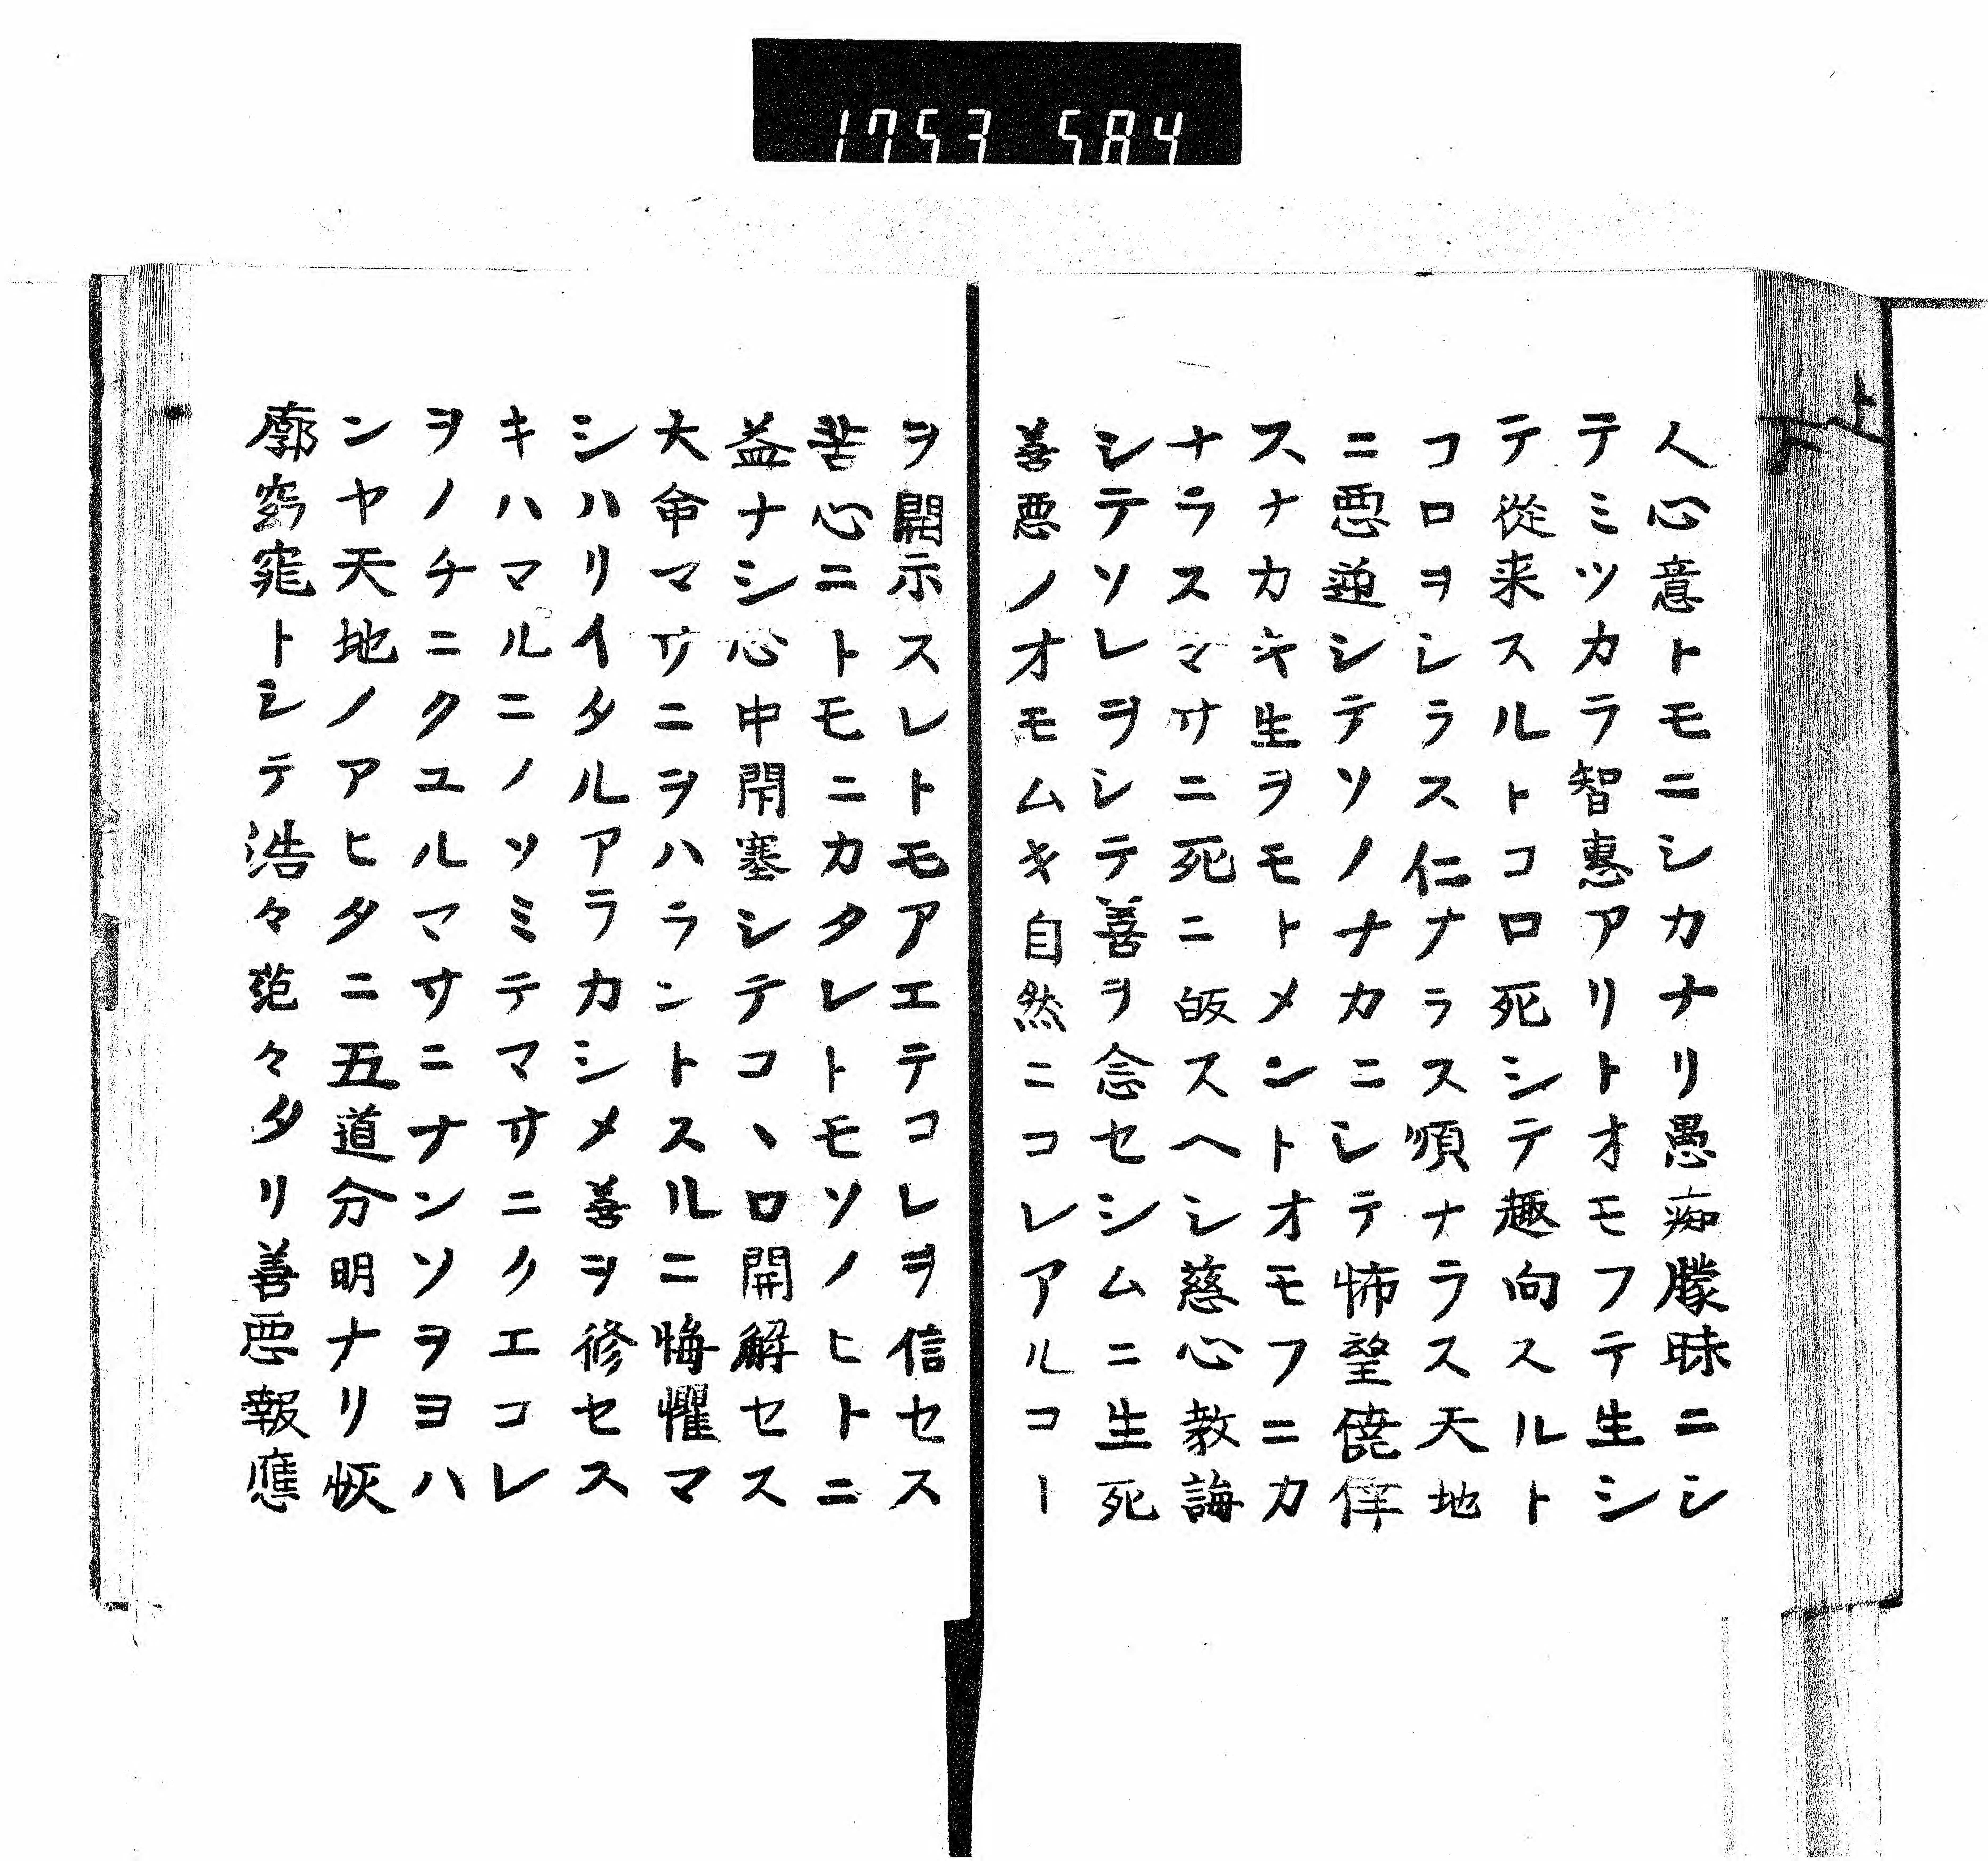 1753 584
人心意トモニシカナリ愚痴矇昧ニシ
テミツカラ智惠アリトオモフテ生シ
テ從来スルトコロ死シテ趣向スルト
コロヲシラス仁ナラス順ナラス天地
ニ悪逆シテソノナカニシテ怖望僥倖
スナカキ生ヲモトメントオモフニカ
ナラスマサニ死ニ皈スヘシ慈心教誨
シテソレヲシテ善ヲ念セシムニ生死
善悪ノオモムキ自然ニコレアルコー
ヲ開示スレトモアエテコレヲ信セス
苦心ニトモニカタレトモソノヒトニ
益ナシ心中閇塞シテコヽロ開解セス
大命マサニヲハラントスルニ悔懼マ
シハリイタルアラカシメ善ヲ修セス
キハマルニノソミテマサニクエコレ
ヲノチニクユルマサニナンソヲヨハ
ンヤ天地ノアヒタニ五道分明ナリ恢
廓窈窕トシテ浩々茫々タリ善悪報應